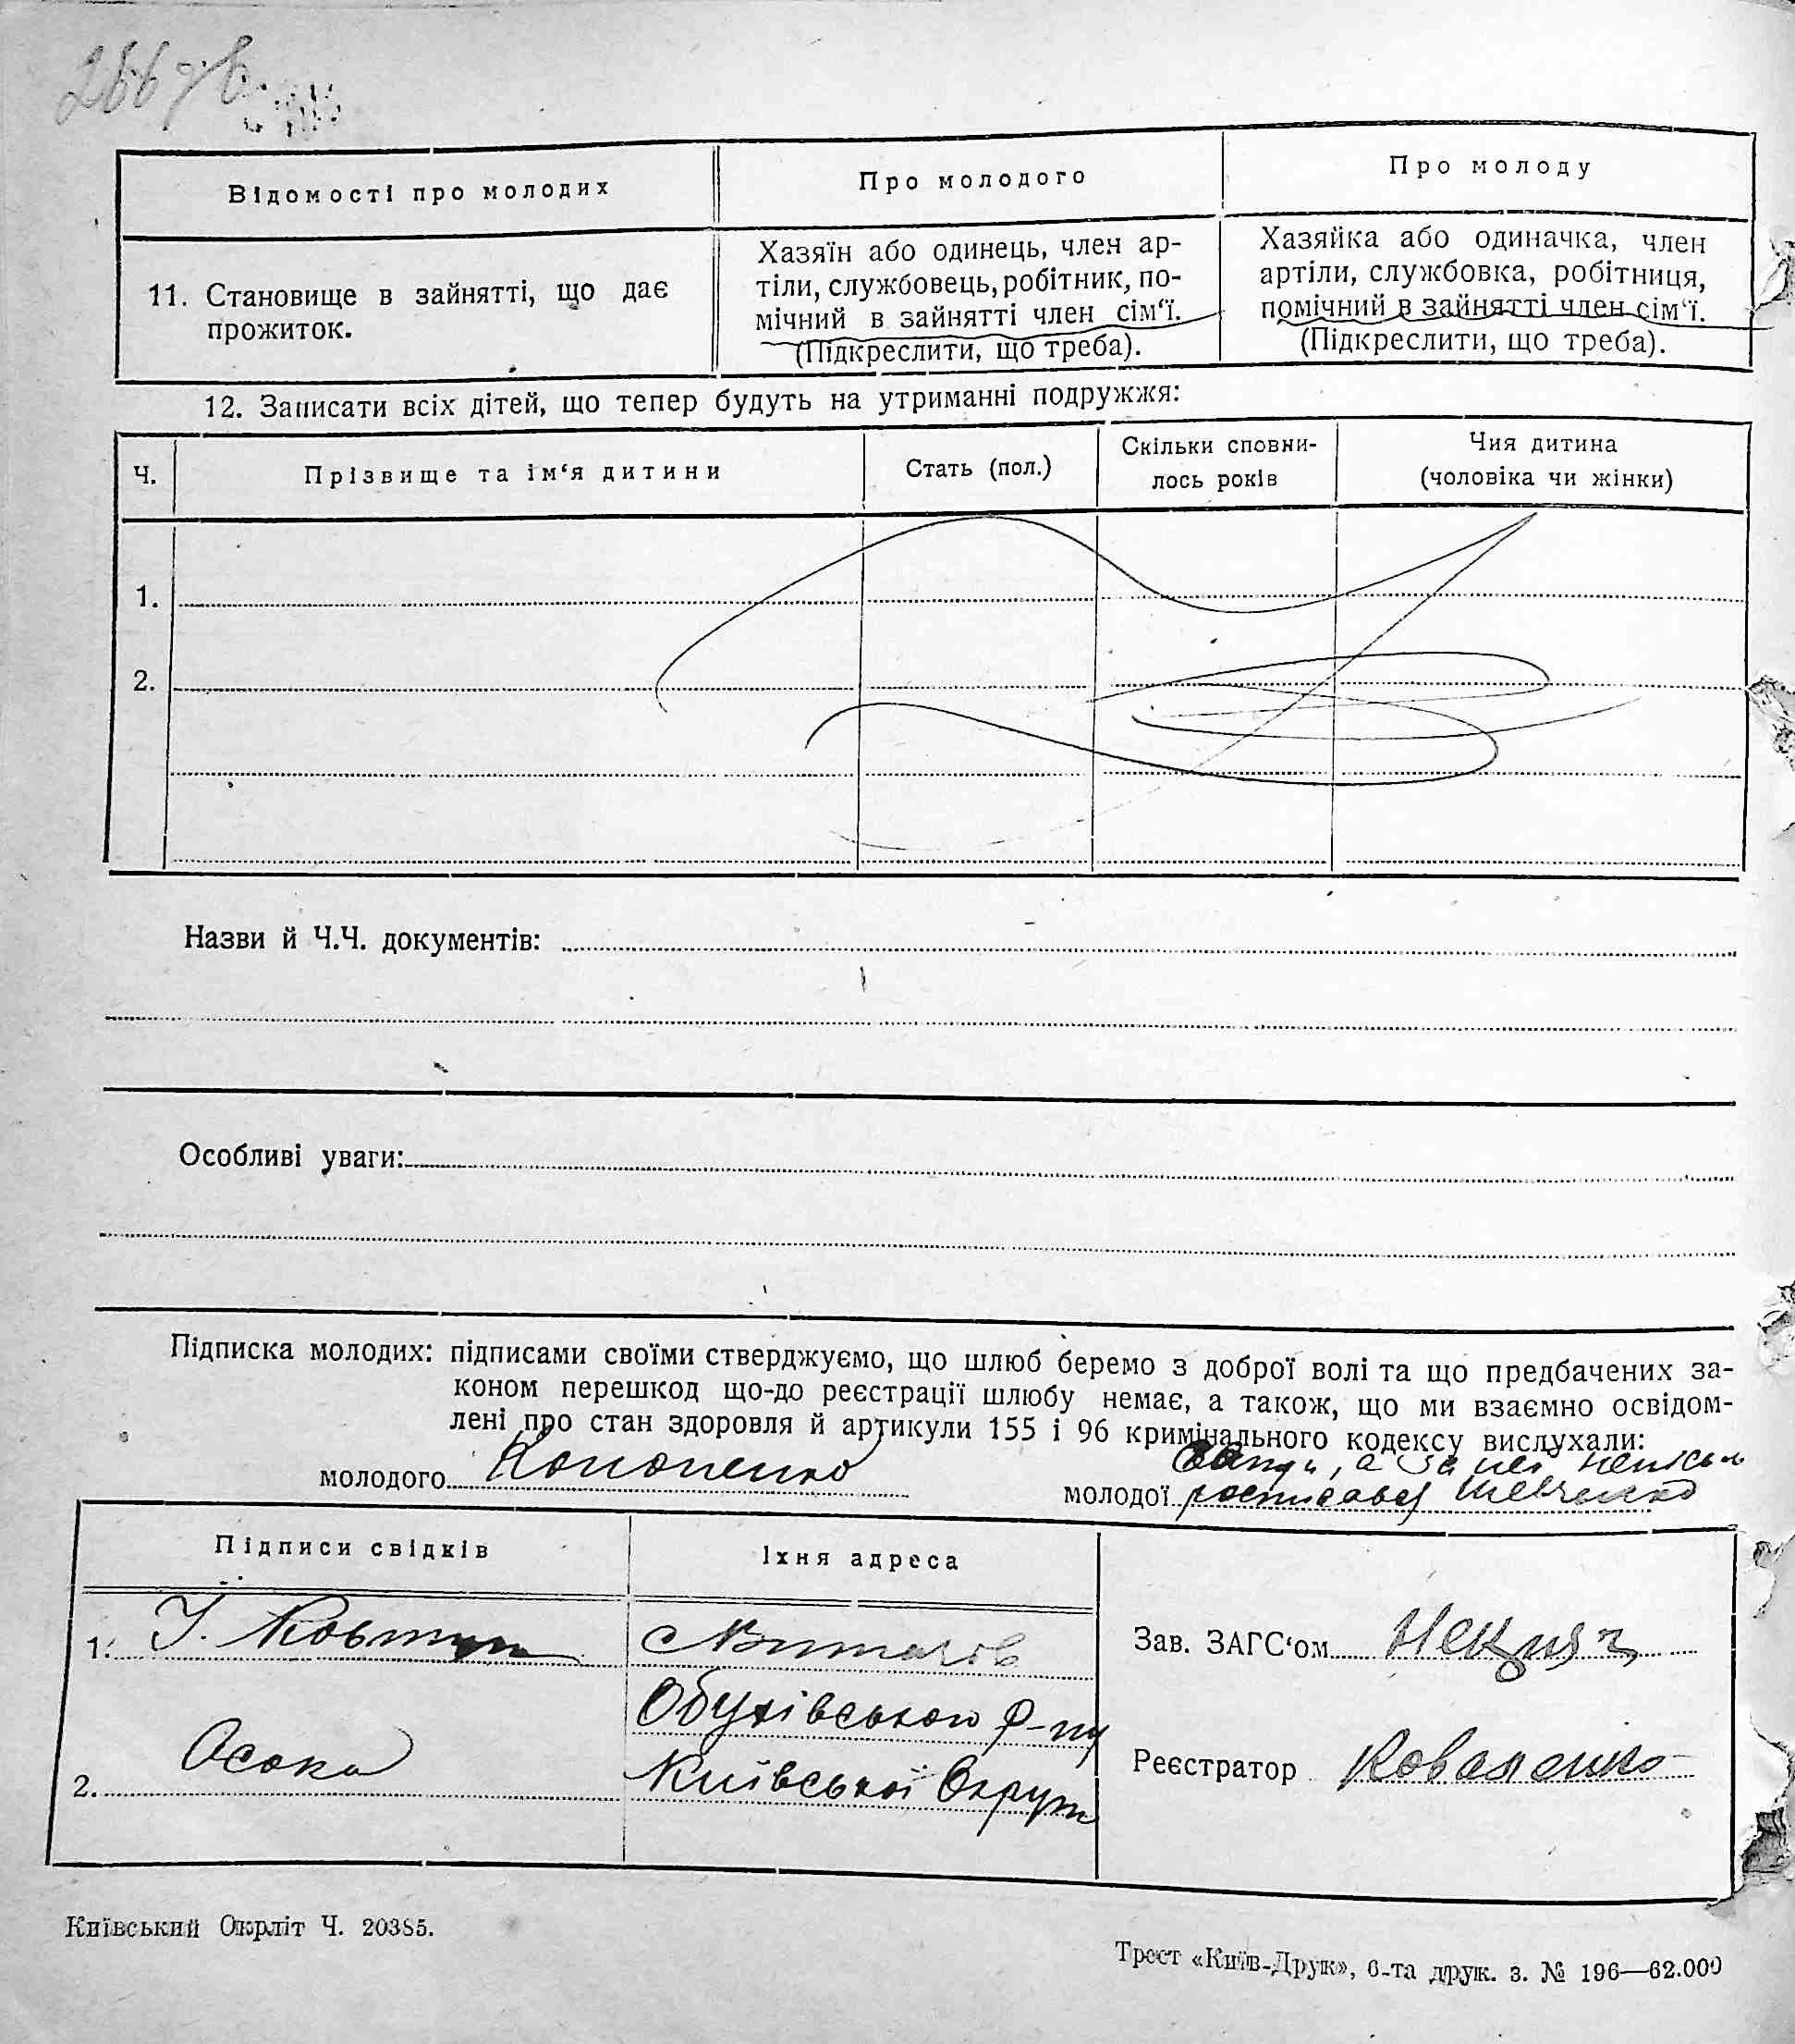 266 зв.
Відомості про молодих
Про молодого
Про молоду
11. Становище в зайнятті, що дає
прожиток.
Хазяїн або одинець, член ар-
тіли, службовець, робітник, по-
мічний в зайнятті член сім‘ї.
(Підкреслити, що треба).
Хазяйка або одиначка, член
артіли, службовка, робітниця,
помічний в зайнятті член сім‘ї.
(Підкреслити, що треба).
12. Записати всіх дітей, що тепер будуть на утриманні подружжя:
Ч.
Прізвище та ім‘я дитини
Стать (пол.)
Скільки сповни-
лось років
Чия дитина
(чоловіка чи жінки)
1.
2.
Назви й Ч.Ч. документів:
Особливі уваги:
Підписка молодих: підписами своїми стверджуємо, що шлюб беремо з доброї волі та що предбачених за-
коном перешкод що-до реєстрації шлюбу немає, а також, що ми взаємно освідом-
лені про стан здоровля й артикули 155 і 96 кримінального кодексу вислухали:
молодого Кононенко
а за неї непісьм
молодої росписався Шевченко
Підписи свідків
Їхня адреса
1. І. Ковтун
Обухівського Р-ну
2. Осока
Київської Округи
Зав. ЗАГС‘ом
Реєстратор Коваленко
Київський Окрліт Ч. 20385.
Трест «Київ-Друк», 6-та друк. з. № 196—62.000